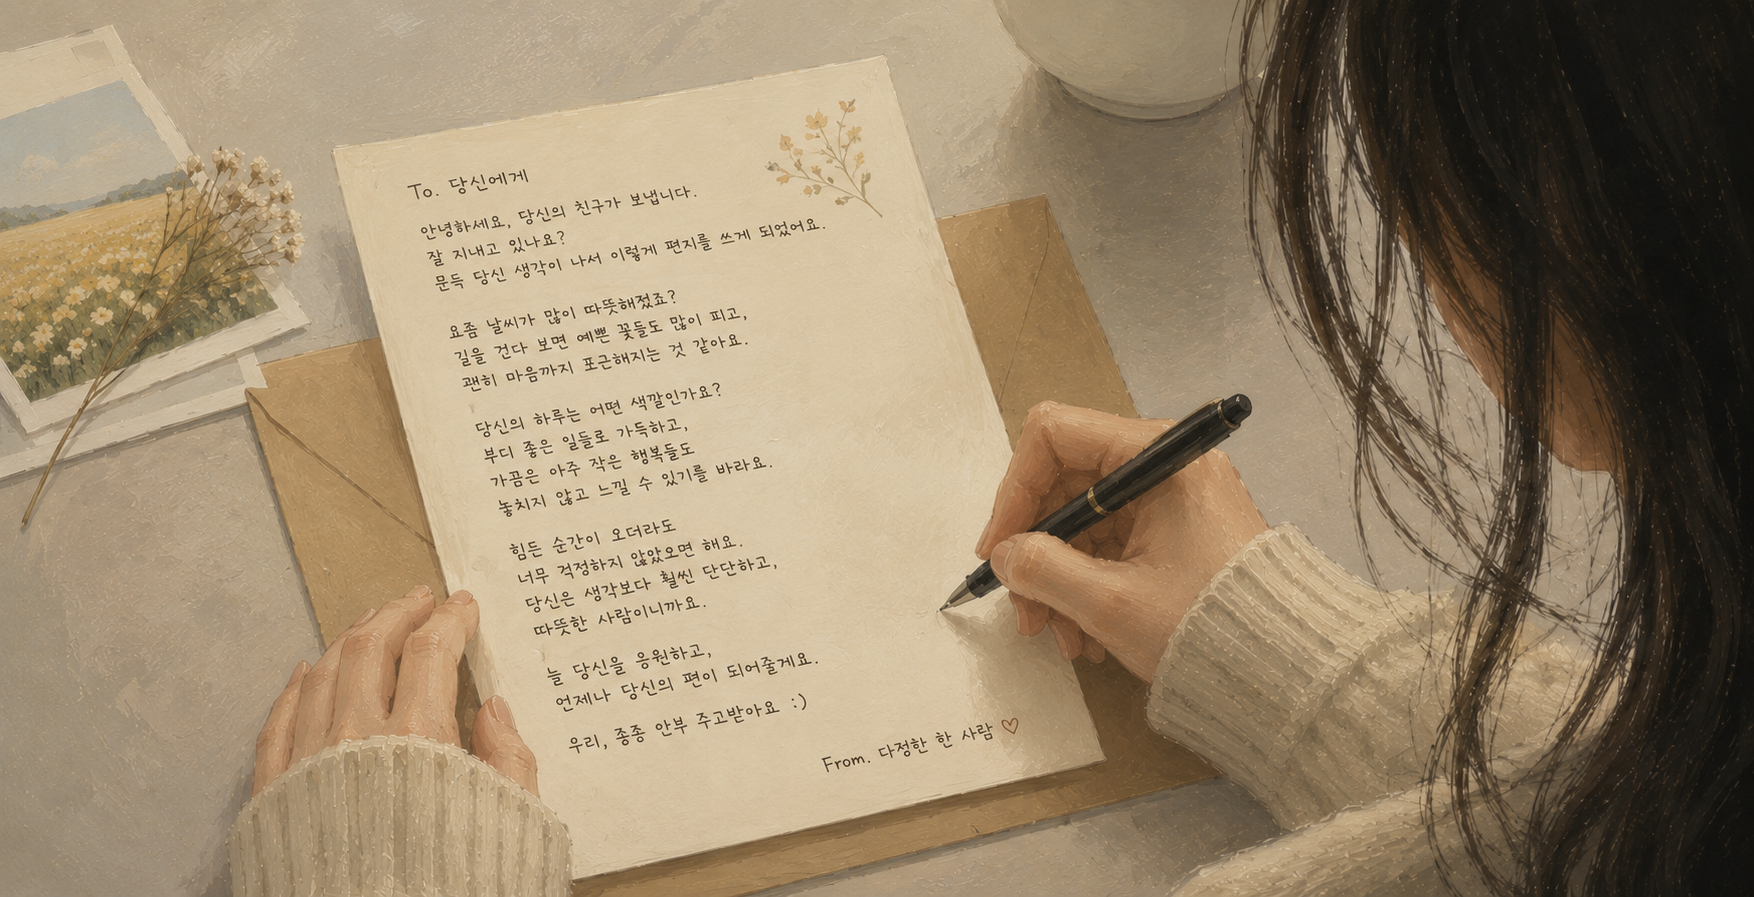 To. 당신에게
안녕하세요, 당신의 친구가 보냅니다.
잘 지내고 있나요?
문득 당신 생각이 나서 이렇게 편지를 쓰게 되었어요.
요즘 날씨가 많이 따뜻해졌죠?
길을 걷다 보면 예쁜 꽃들도 많이 피고,
괜히 마음까지 포근해지는 것 같아요.
당신의 하루는 어떤 색깔인가요?
부디 좋은 일들로 가득하고,
가끔은 아주 작은 행복들도
놓치지 않고 느낄 수 있기를 바라요.
힘든 순간이 오더라도
너무 걱정하지 않았으면 해요.
당신은 생각보다 훨씬 단단하고,
따뜻한 사람이니까요.
늘 당신을 응원하고,
언제나 당신의 편이 되어줄게요.
우리, 종종 안부 주고받아요 :)
From. 다정한 한 사람 ♡